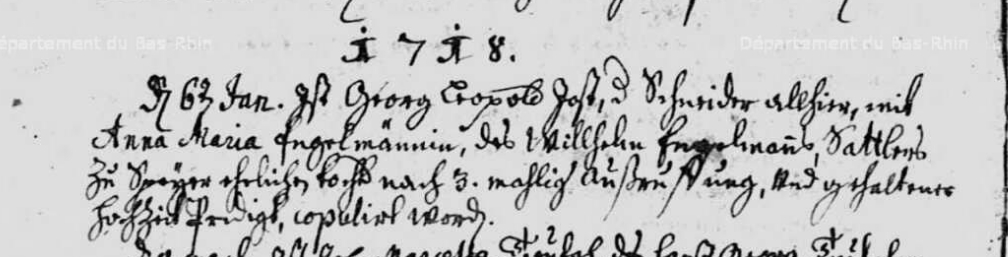 épartement du Bas-Rhin
Département du Bas-Rhin
1718.
D 6t Jan. Ist Georg Leopold Jost, d Schneider allhier, mit
Anna Maria Engelmännin, des Willhelm Engelmanns, Sattlers
zu Speyer ehelichen tocht nach 3. mahlig Außruffung, und gehaltener
hochzeit Predigt, copulirt word.